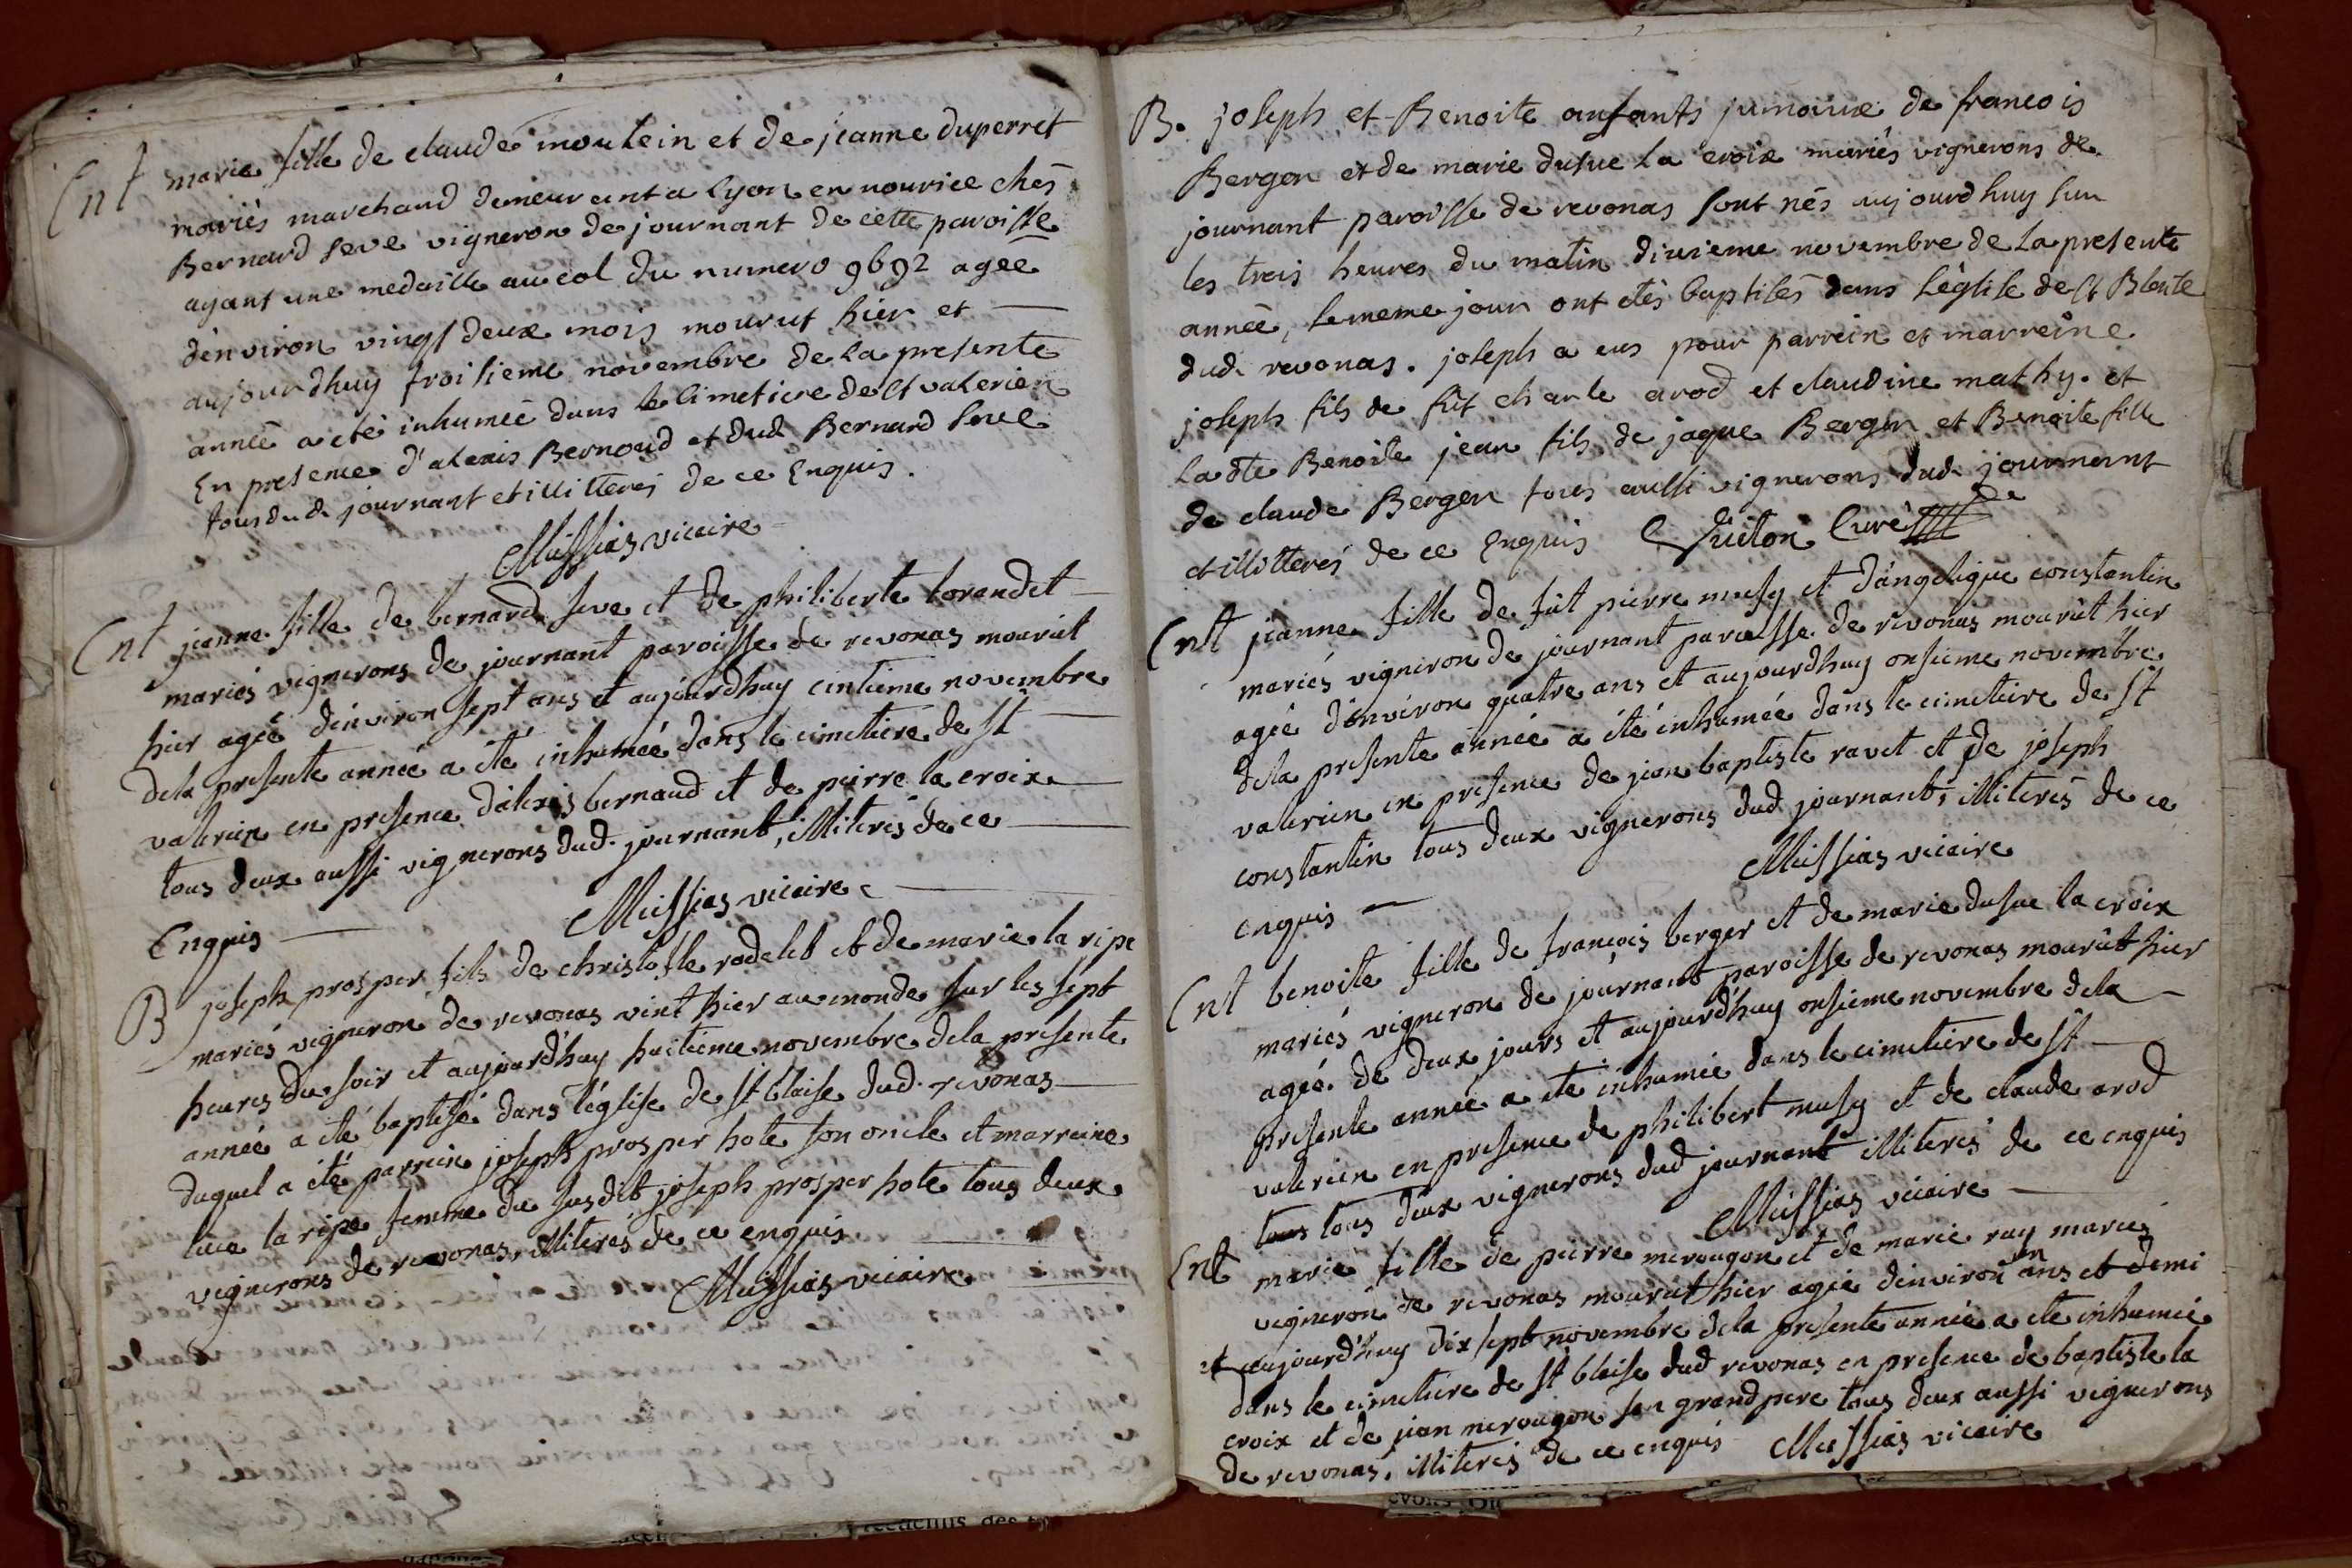 Ent marie fille de claude moulein et de jeanne duperret
mariés marchand demeurant a Lyon en nourice chés
Bernard seve vigneron de journant de cette paroisse
ayant une medaille au col du numero 9692 agee
d'environ vingt deux mois mourut hier et
aujourdhuy troisieme novembre de la presente
année a eté inhumée dans le simetiere de st valerien
En presence d'alexis Bernoud et dud Bernard seve
tous dud. journant et illitterés de ce Enquis.
Meissias vicaire
Ent jeanne fille de bernard seve et de philiberte lorandet
mariés vignerons de journant paroisse de revonas mourut
hier ageé d'environ sept ans et aujourdhuy cintieme novembre
dela presente année a été inhumeé dans le cimetiere de st
valerien en presence d'alexis bernaud et de pierre la croix
tous deux aussi vignerons dud. journant, illiterés de ce
Enquis
Meissias vicaire
B joseph prosper fils de christofle rodelet et de marie la ripe
mariés vigneron de revonas vint hier au monde sur les sept
heures du soir et aujourdhuy huitieme novembre dela presente
année a été baptisé dans l'église de st blaise dud. revonas
duquel a été parrein joseph prosper hote son oncle et marreine
luce la ripe femme du susdit joseph prosper hote tous deux
vignerons de revonas, illiterés de ce enquis
Meissias vicaire
B. joseph et Benoite anfants jumaux de francois
Berger et de marie dusue La croix mariés vignerons de
journant paroisse de revonas sont nés aujourdhuy sur
les trois heures du matin dixieme novembre de La presente
année, le meme jour ont étés baptisés dans L'église de st Blaise
dud. revonas. joseph a eus pour parrein et marreine
joseph fils de fût charle arod et claudine mathy. et
La dte Benoite jean fils de jaque Berger et Benoite fille
de claude Berger tous aussi vignerons dud. journant
et illitterés de ce Enquis Curé
Ent jeanne fille de fût pierre musy et d'angelique constantin
mariés vigneron de journant paroisse de revonas mourut hier
ageé d'environ quatre ans et aujourdhuy onsieme novembre
dela presente année a été inhumeé dans le cimetiere de st
valerien en presence de jean baptiste ravet et de joseph
constantin tous deux vignerons dud journant, illiterés de ce
enquis
Meissias vicaire
Ent benoite fille de françois berger et de marie dusue la croix
mariés vigneron de journant paroisse de revonas mourut hier
ageé de deux jours et aujourd'huy onsieme novembre dela
presente année a eté inhumée dans le cimetiere de st
valerien en presence de philibert musy et de claude arod
tous tous deux vignerons dud journant illiterés de ce enquis
Meissias vicaire
Ent marie fille de pierre merougon et de marie ray mariés
vigneron de revonas mourut hier ageé d'environ un ans et demi
et aujourd'huy dix sept novembre dela presente année a eté inhumée
dans le cimetiere de st blaise dud revonas en presence de baptiste la
croix et de jean merougon son grand pere tous deux aussi vignerons
de revonas, illiterés de ce enquis Meissias vicaire